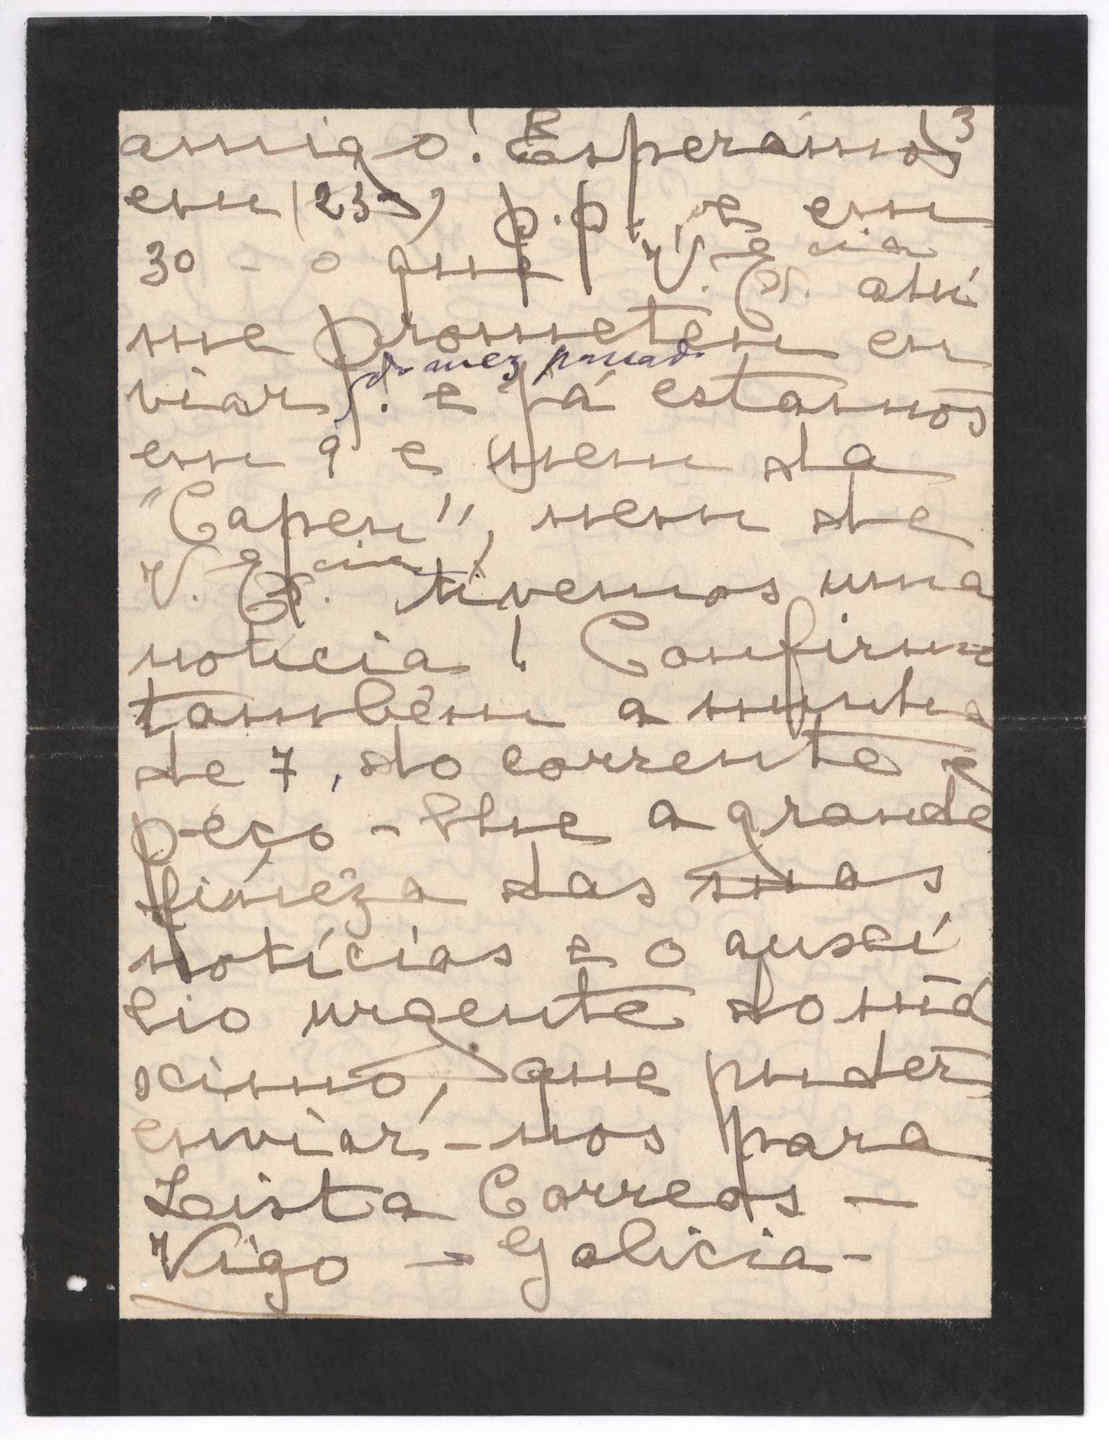 3
amigo! Esperámos
em (23) p.p. e em
30 - o que V. Ex.cia ahi
me prometeu en
viar, do mez passado
. e já estamos
em 9 e nem da
"Capen", nem de
V. Ex.cia tivemos uma
notícia! Confirmo
também a minha
de 7, do corrente e
peço-lhe a grande
finêza das suas
notícias e o auscí
lio urgente do má
scimo, que puder
enviar-nos para
Lista Correos -
Vigo - Galicia -